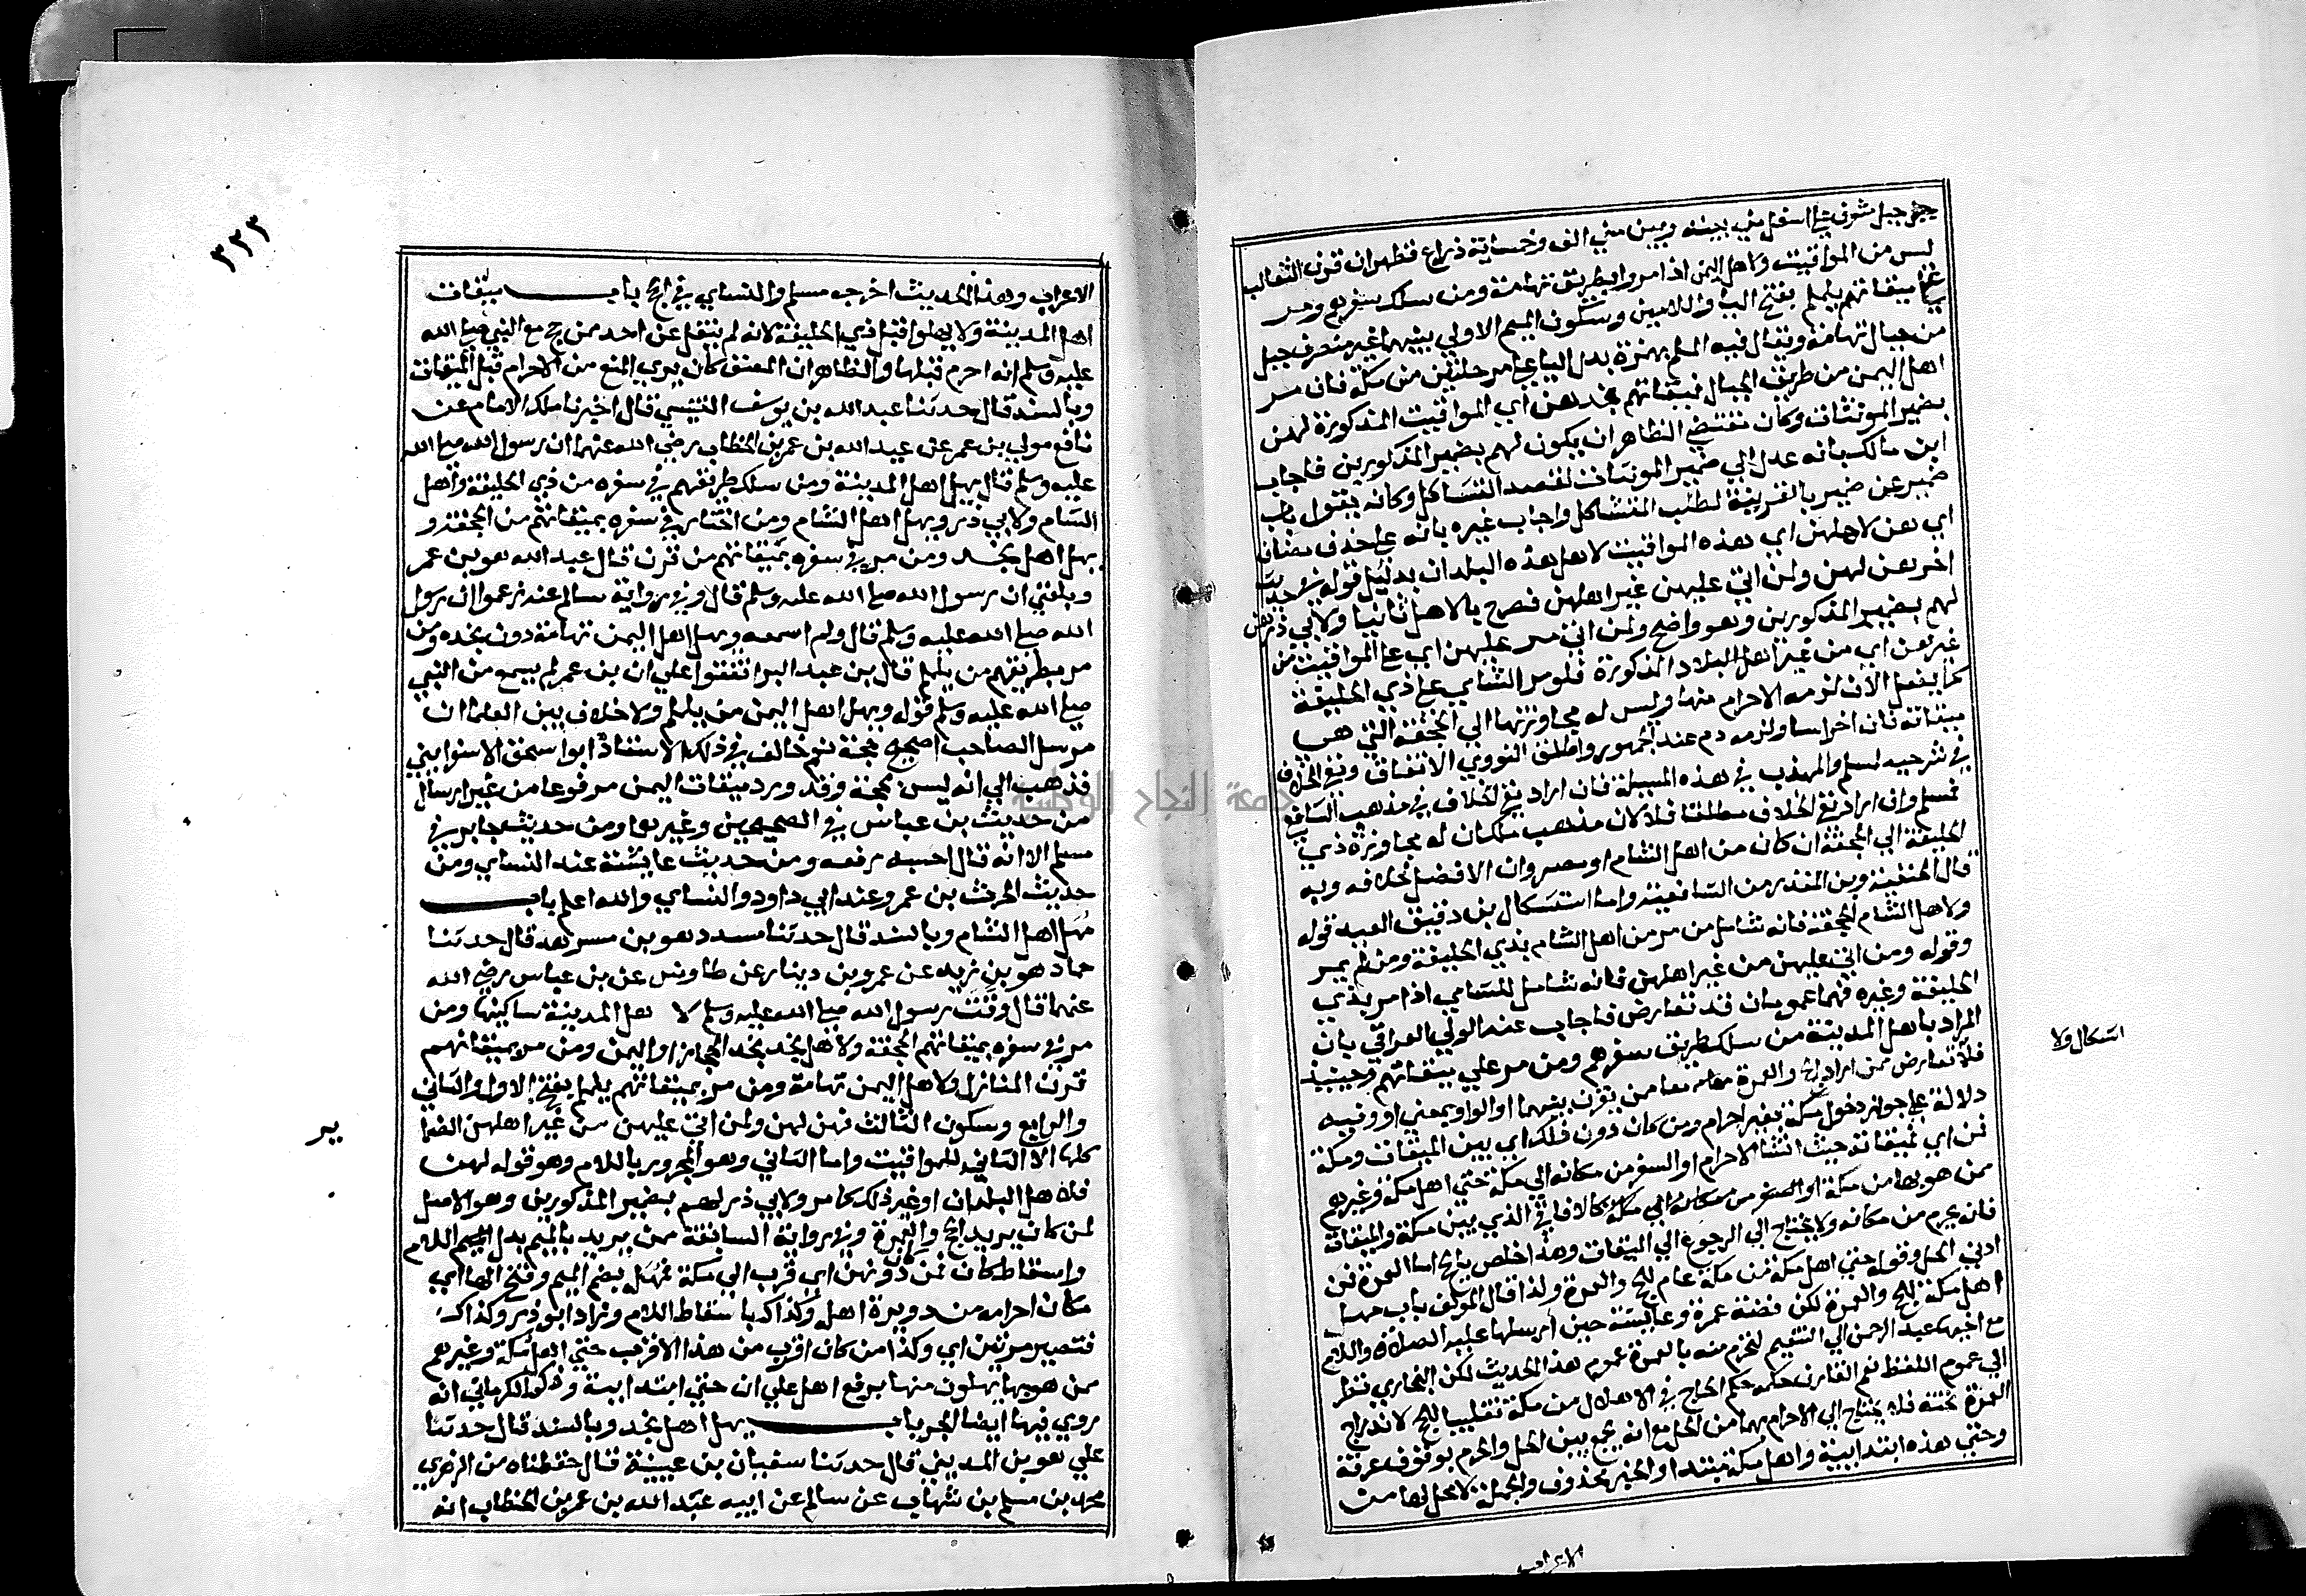 لسن من المواقيت ولاهل اليمن اذا مروا بطريق تهامة ومن سلك سفرهم ومر
على ميقاتهم يلملم بفتح اليا واللامين وسكون الميم الاولي بينهما غير منصرف جبل
من جبال تهامة ويقال فيه الملم بهمزة بدل اليا على مرحلتين من مكة فان مر
اهل اليمن من طريق الجبال فميقاتهم نجد هن اي المواقيت المذكورة لهن
بضمير المونثات وكان مقتضي الظاهر ان يكون لهم بضمير المذكورين فاجاب
ابن مالك بانه عدل الي ضمير المونثات لقصد التشاكل وكانه يقول ناب
ضمير عن ضمير بالقرينة لطلب التشاكل واجاب غيره بانه على حذف مضاف
اي هن لاهلهن اي هذه المواقيت لاهل هذه البلدان بدليل قوله في حديث
اخر هن لهن ولمن اتي عليهن من غير اهلهن فصرح بالاهل ثانيا ولابي ذر هن
لهم بضمير المذكورين وهو واضح ولمن اتي مر عليهن اي على المواقيت من
غيرهن اي من غير اهل البلاد المذكورة فلو مر الشامي على ذي الحليفة
كما يفعل الان لزمه الاحرام منها وليس له مجاوزتها الي الجحفة التي هي
ميقاته فان اخر اسا ولزمه دم عند الجمهور واطلق النووي الاتفاق ونفي الخلاف
في شرحيه لمسلم والمهذب في هذه المسيلة فان اراد نفي الخلاف في مذهب الشافعي
فمسلم وان اراد نفي الخلاف مطلقا فلا لان مذهب ملك ان له مجاوزة ذي
الحليفة الي الجحفة ان كان من اهل الشام او مصر وان الافضل خلافه وبه
قال الحنفية وبن المنذر من الشافعية واما استشكال بن دقيق العيد قوله
ولاهل الشام الجحفة فانه شامل من مر من اهل الشام بذي الحليفة ومن لم يمر
وقوله ومن اتي عليهن من غير اهلهن فانه شامل للشامي اذا مر بذي
الحليفة وغيره فهما عمومان قد تعارضا فاجاب عنه الولي العراقي بان
المراد باهل المدينة من سلك طريق سفرهم ومن مر علي ميقاتهم وحينيذ
اشكال ولا
فلا تعارض ممن اراد الحج والعمرة معا بان يقرن بينهما او الواو بمعني او وفيه
دلالة على جواز دخول مكة بغير احرام ومن كان دون ذلك اي بين الميقات ومكة
فمن اي فميقاته حيث انشا الاحرام او السفر من مكانه الي مكة حتي اهل مكة وغيرهم
ممن هو بها من مكة كالافاقي الذي بين مكة والميقات
فانه يحرم من مكانه ولا يحتاج الي الرجوع الي الميقات وهذا خاص بالحج اما العمرة فمن
ادني الحل وقوله حتي اهل مكة من مكة عام للحج والعمرة ولذا قال المولف باب مهل
اهل مكة للحج والعمرة لكن قضة عمرة وعايشة حين ارسلها عليه الصلاة والسلام
مع اخيها عبد الرحمن الي التنعيم لتحرم منه بالعمرة عموم هذا الحديث لكن البخاري نظر
الي عموم اللفظ نعم القارن حكمه حكم الحاج في الاهلال من مكة تغليبا للحج لاندراج
العمرة تحته فلا يحتاج الي الاحرام بها من الحل مع انه يجمع بين الحل والحرم بوقوف عرفة
وحتي هذه ابتدايية واهل مكة مبتدا والخبر محذوف والجملة لا محل لها من
الاعراب
٣٢٣
الاعراب وهذا الحديث اخرجه مسلم والنساي في الحج باب ميقات
اهل المدينة ولا يهلوا قبل ذي الحليفة لانه لم ينقل عن احد ممن حج مع النبي صلى الله
عليه وسلم انه احرم قبلها والظاهر ان المصنف كان يري المنع من الاحرام قبل الميقات
وبالسند قال حدثنا عبد الله بن يوسف التنيسي قال اخبرنا ملك الامام عن
نافع مولي بن عمر عن عبد الله بن عمر بن الخطاب رضي الله عنهما ان رسول الله صلى الله
عليه وسلم قال يهل اهل المدينة ومن سلك طريقهم في سفره من ذي الحليفة واهل
الشام ولابي ذر ويهل اهل الشام ومن اجتاز في سفره بميقاتهم من الجحفة و
يهل اهل نجد ومن مر في سفره بميقاتهم من قرن قال عبد الله هو بن عمر
وبلغني ان رسول الله صلى الله عليه وسلم قال وفي رواية سالم عنه زعموا ان رسول
الله صلى الله عليه وسلم قال ولم اسمعه ويهل اهل اليمن تهامة دون نجده ومن
مر بطريقهم من يلملم قال بن عبد البر اتفقوا علي ان بن عمر لم يسمع من النبي
صلى الله عليه وسلم قوله ويهل اهل اليمن من يلملم ولا خلاف بين العلما ان
مرسل الصاحب صحيح حجة نعم خالف في ذلك الاستاذ ابو اسحق الاسفرايني
فذهب الي انه ليس بحجة وقد ورد ميقات اليمن مرفوعا من غير ارسال
من حديث بن عباس في الصحيحين وغيرهما ومن حديث جابر في
مسلم الا انه قال احسبه رفعه ومن حديث عايشة عند النساي ومن
حديث الحرث بن عمرو عند ابي داود والنساي والله اعلم باب
مهل اهل الشام وبالسند قال حدثنا مسدد هو بن مسرهد قال حدثنا
حماد هو بن زيد عن عمرو بن دينار عن طاوس عن بن عباس رضي الله
عنهما قال وقت رسول الله صلى الله عليه وسلم لاهل المدينة ساكنيها ومن
مر في سفره بميقاتهم الجحفة ولاهل نجد نجد الحجاز او اليمن ومن مر بميقاتهم
قرن المنازل ولاهل اليمن تهامة ومن مر بميقاتهم يلملم بفتح الاول والثاني
والرابع وسكون الثالث فهن لهن ولمن اتي عليهن من غير اهلهن الضما
ير
كلها الا الثاني للمواقيت واما الثاني وهو المجرور باللام وهو قوله لهن
فلاهل البلدان او غير ذلك كما مر ولابي ذر لهم بضمير المذكورين وهو الاصل
لمن كان يريد الحج والعمرة وفي رواية السابقة ممن يريد بالميم بدل اللام
واسقاط كان فمن كان دونهن اي قرب الي مكة فمهله بضم الميم وفتح الها اي
مكان احرامه من دويرة اهله وكذاك باسقاط اللام وزاد ابو ذر وكذاك
فتصير مرتين اي وكذا من كان اقرب من هذا الاقرب حتي اهل مكة وغيرهم
ممن هو بها يهلون منها برفع اهل علي ان حتي ابتدايية وذكر الكرماني انه
روي فيها ايضا الجر باب يهل اهل نجد وبالسند قال حدثنا
علي هو بن المديني قال حدثنا سفيان بن عيينة قال حفظناه من الزهري
محمد بن مسلم بن شهاب عن سالم عن ابيه عبد الله بن عمر بن الخطاب انه
جامعة النجاح الوطنية